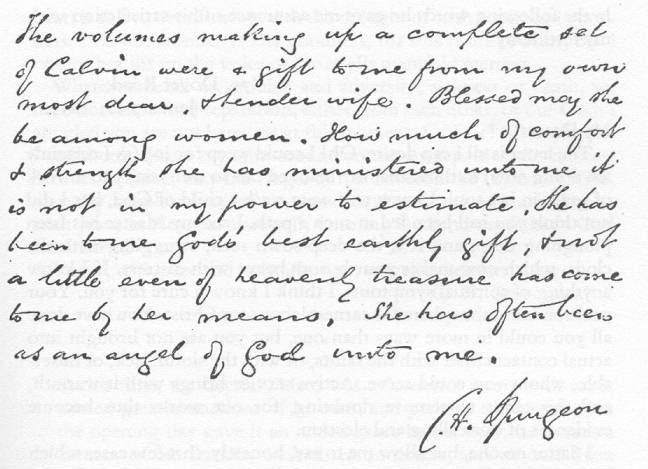 The volumes making up a complete set
of Calvin were a gift to me from my own
most dear & tender wife. Blessed may she
be among women. How much of comfort
& strength she has ministered unto me it
is not in my power to estimate. She has
been to me God's best earthly gift, & not
a little even of heavenly treasure has come
to me by her means. She has often been
as an angel of God unto me.
C. H. Spurgeon